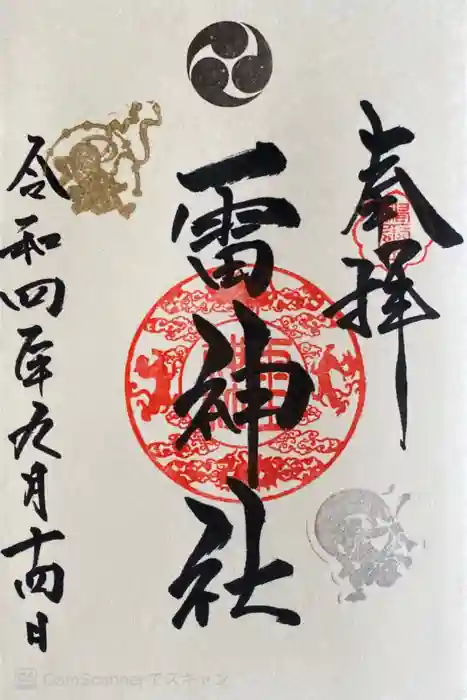 奉拝
雷神社
令和四年九月十四日
CamScannerでスキャン